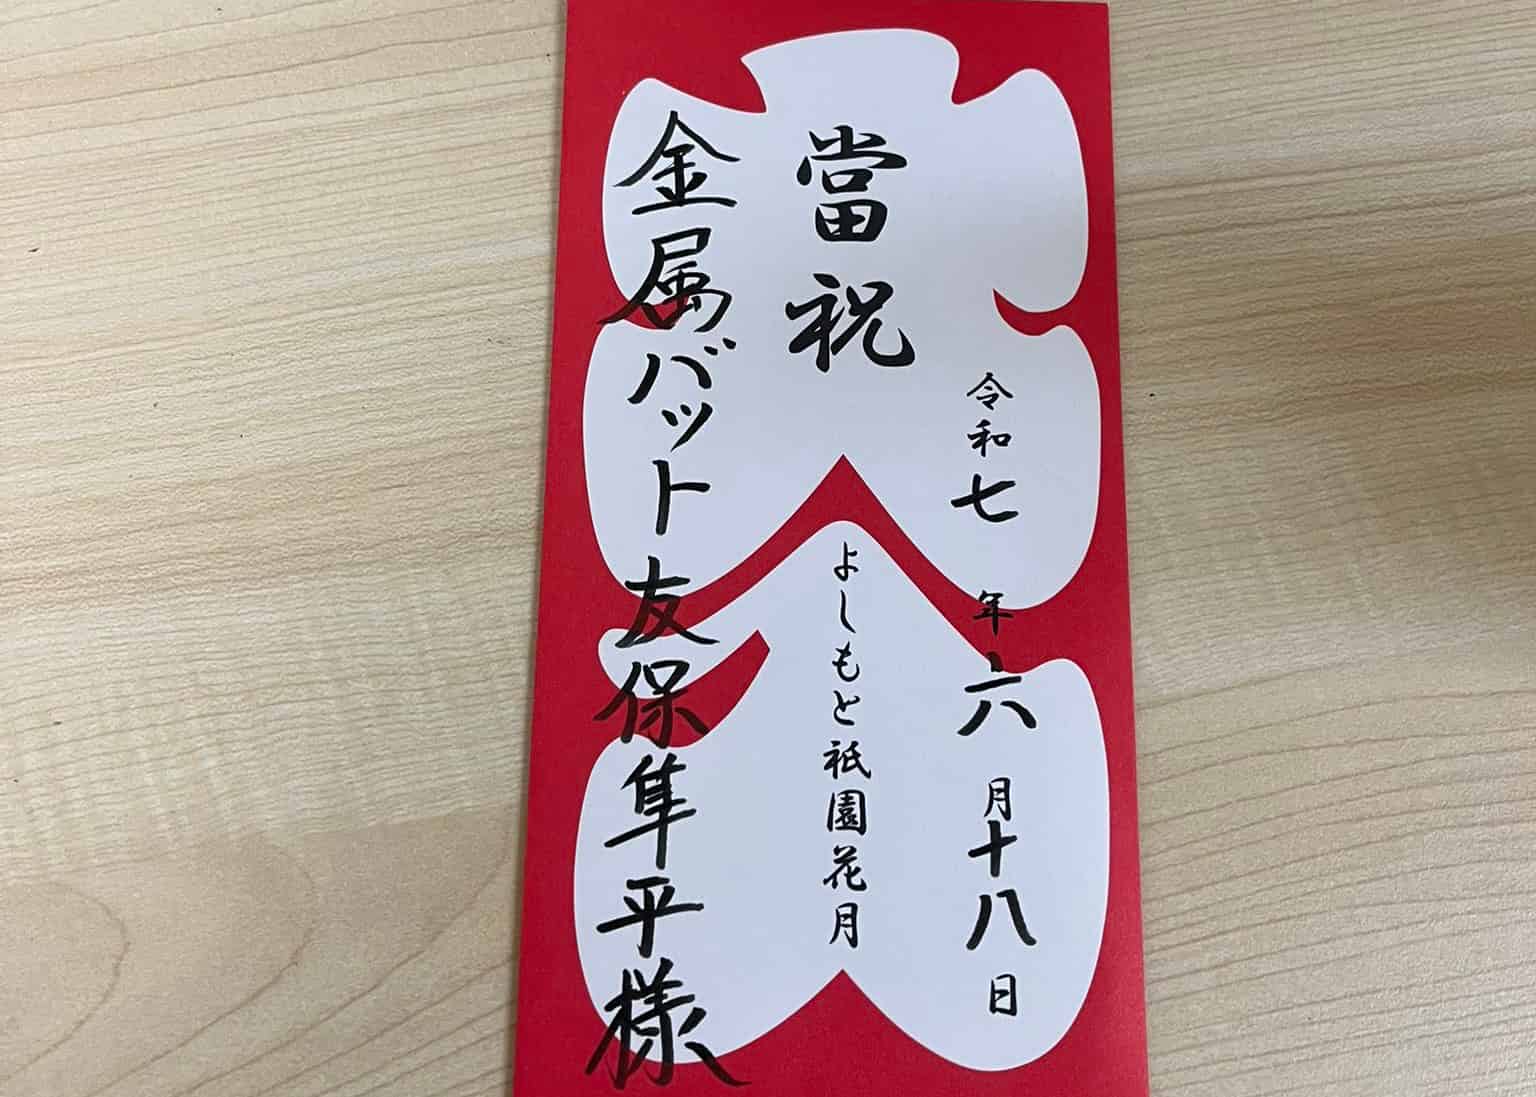 令和七年六月十八日
當祝
よしもと祇園花月
金属バット友保隼平様